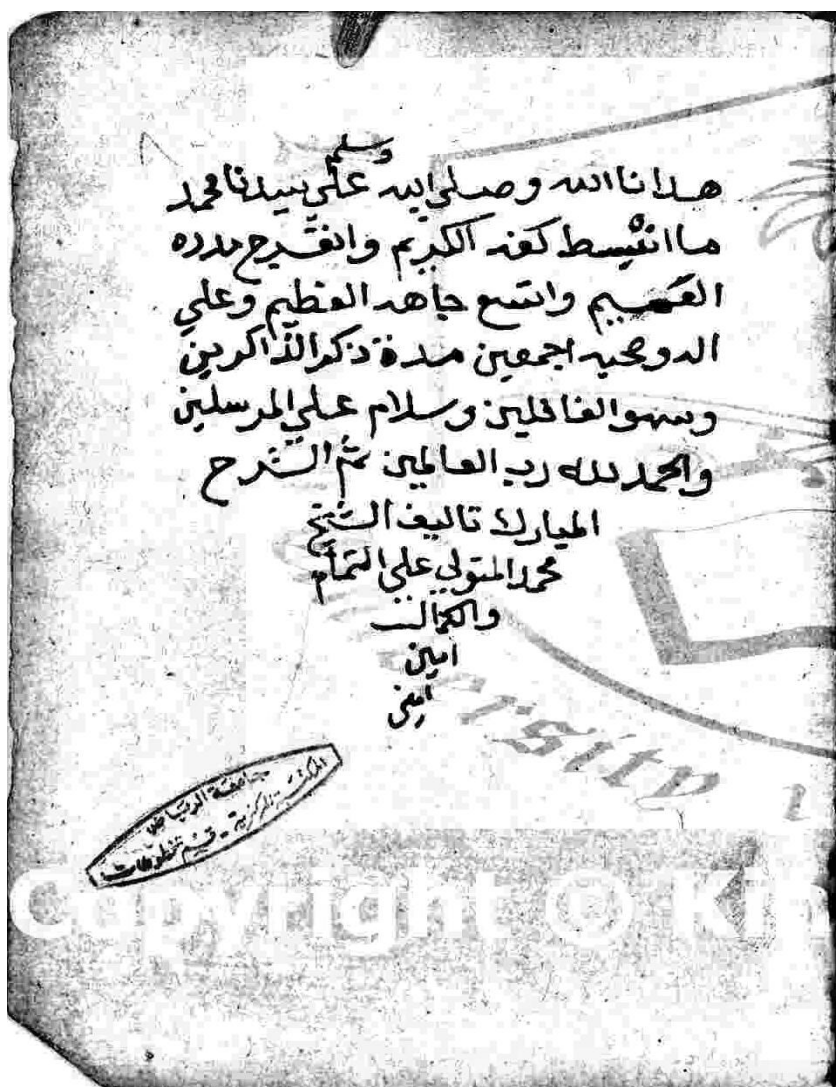 وسلم
هدانا الله وصلى الله علي سيدنا محمد
ما انبسط كفه الكريم وانفرج مدده
العميم واتسع جاهه العظيم وعلي
اله وصحبه اجمعين مدة ذكر الذاكرين
وسهو الغافلين وسلام علي المرسلين
والحمد لله رب العالمين تم الشرح
المبارك تاليف الشيخ
محمد المتولي علي التمام
والكمال
امين
امين
جامعة الرياض
المكتبة المركزية - قسم المخطوطات
ersity
Copyright © Kin